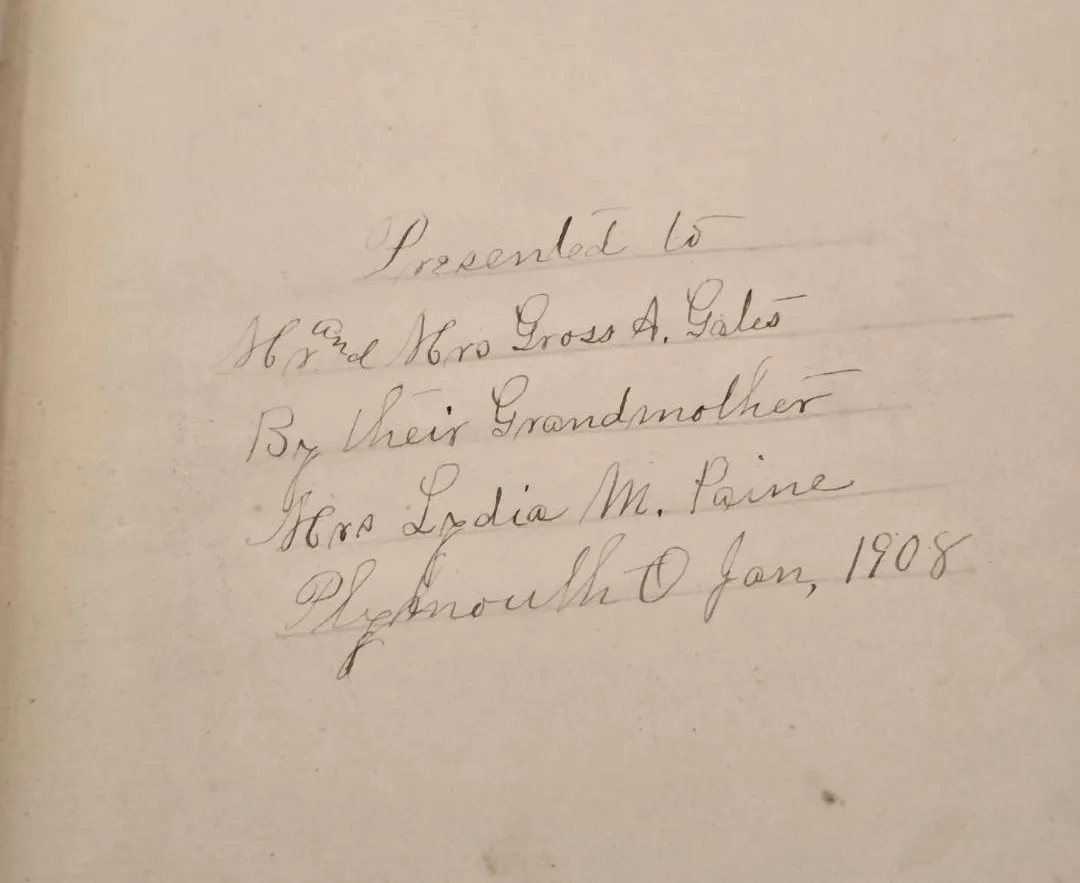 Presented to
Mr and Mrs Gross A. Gates
By their Grandmother
Mrs Lydia M. Paine
Plymouth O Jan, 1908